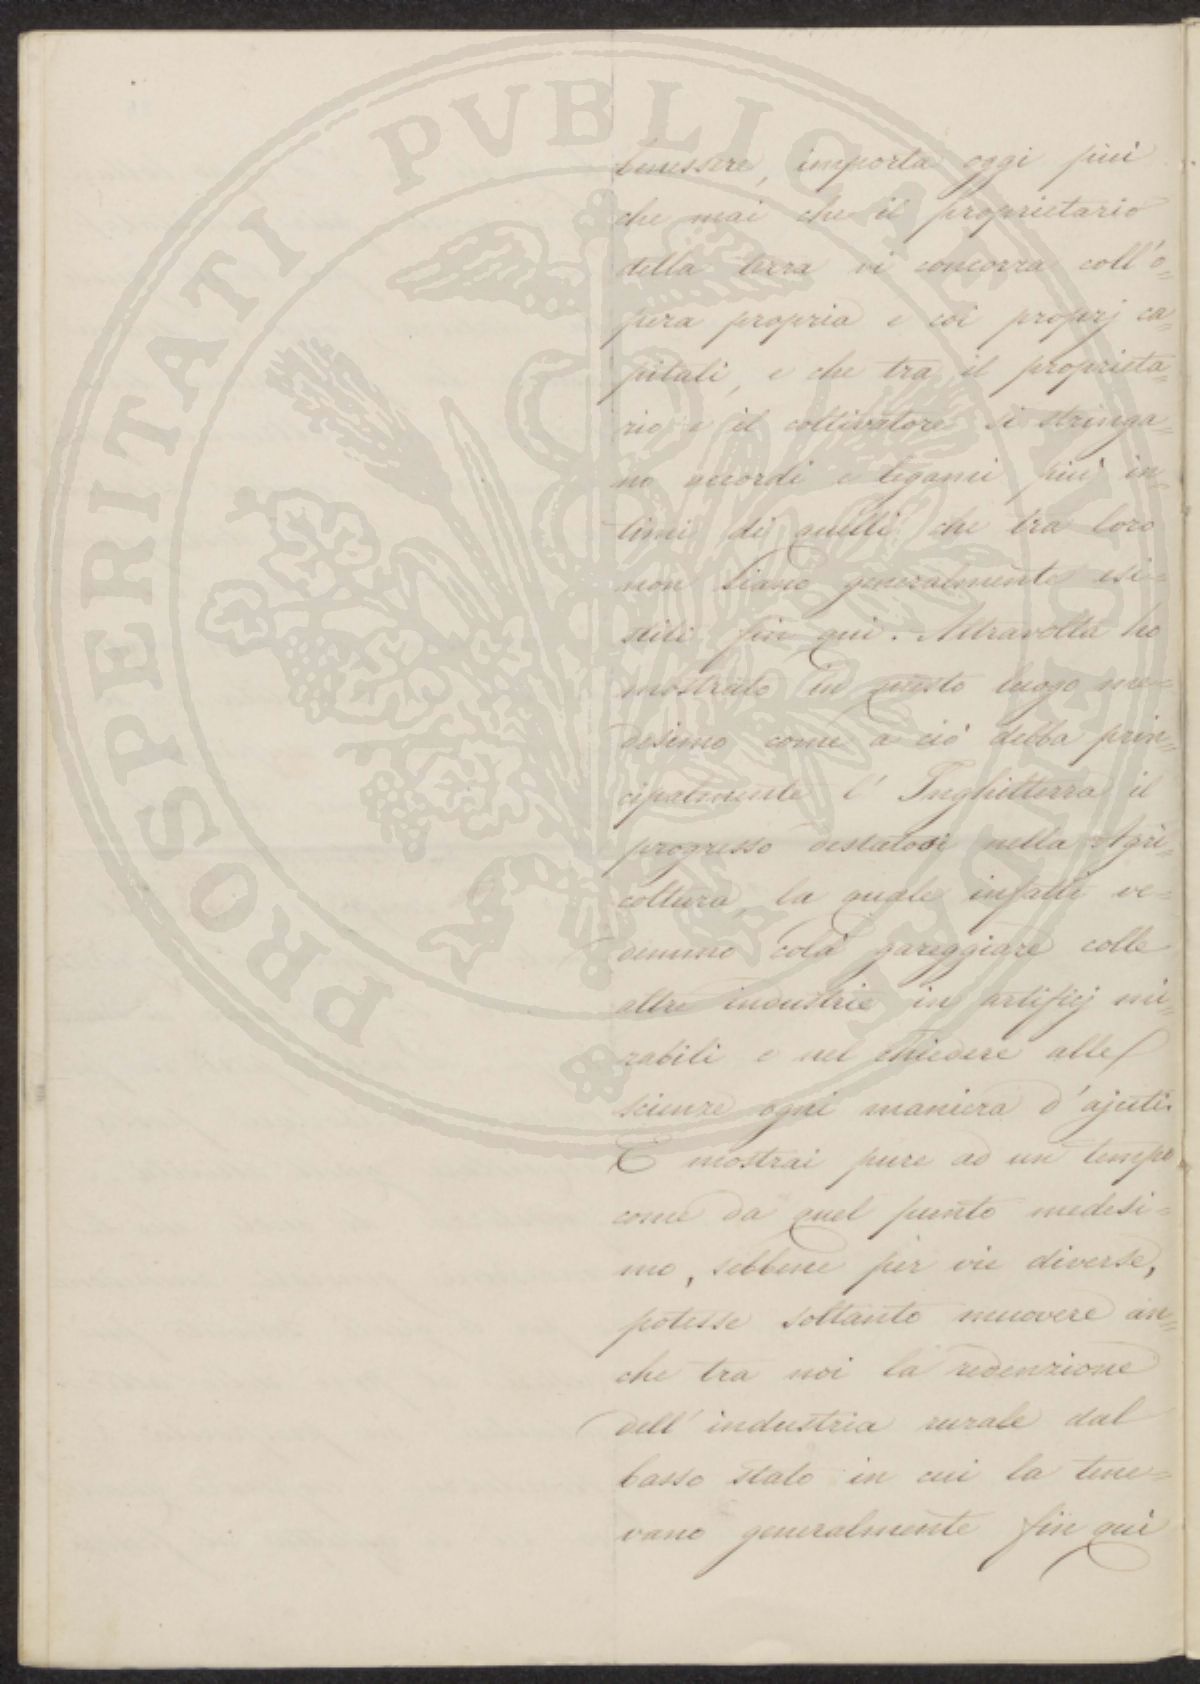 benessere, importa oggi più
che mai che il proprietario
della terra vi concorra coll'o=
pera propria e coi proprj ca=
pitali, e che tra il proprieta=
rio e il coltivatore si stringa=
no accordi e legami più in=
timi di quelli che tra loro
non siano generalmente esi=
stiti fin qui. Altravolta ho
mostrato in questo luogo me=
desimo come a ciò debba prin=
cipalmente l'Inghilterra il
progresso destatosi nella Agri=
coltura, la quale infatti ve=
demmo colà gareggiare colle
altre industrie in artifizj mi=
rabili e nel chiedere alle
scienze ogni maniera d'ajuti.
E mostrai pure ad un tempo
come da quel punto medesi=
mo, sebbene per vie diverse,
potesse soltanto muovere an=
che tra noi la redenzione
dell'industria rurale dal
basso stato in cui la tene=
vano generalmente fin qui
PROSPERITATI PVBLICAE